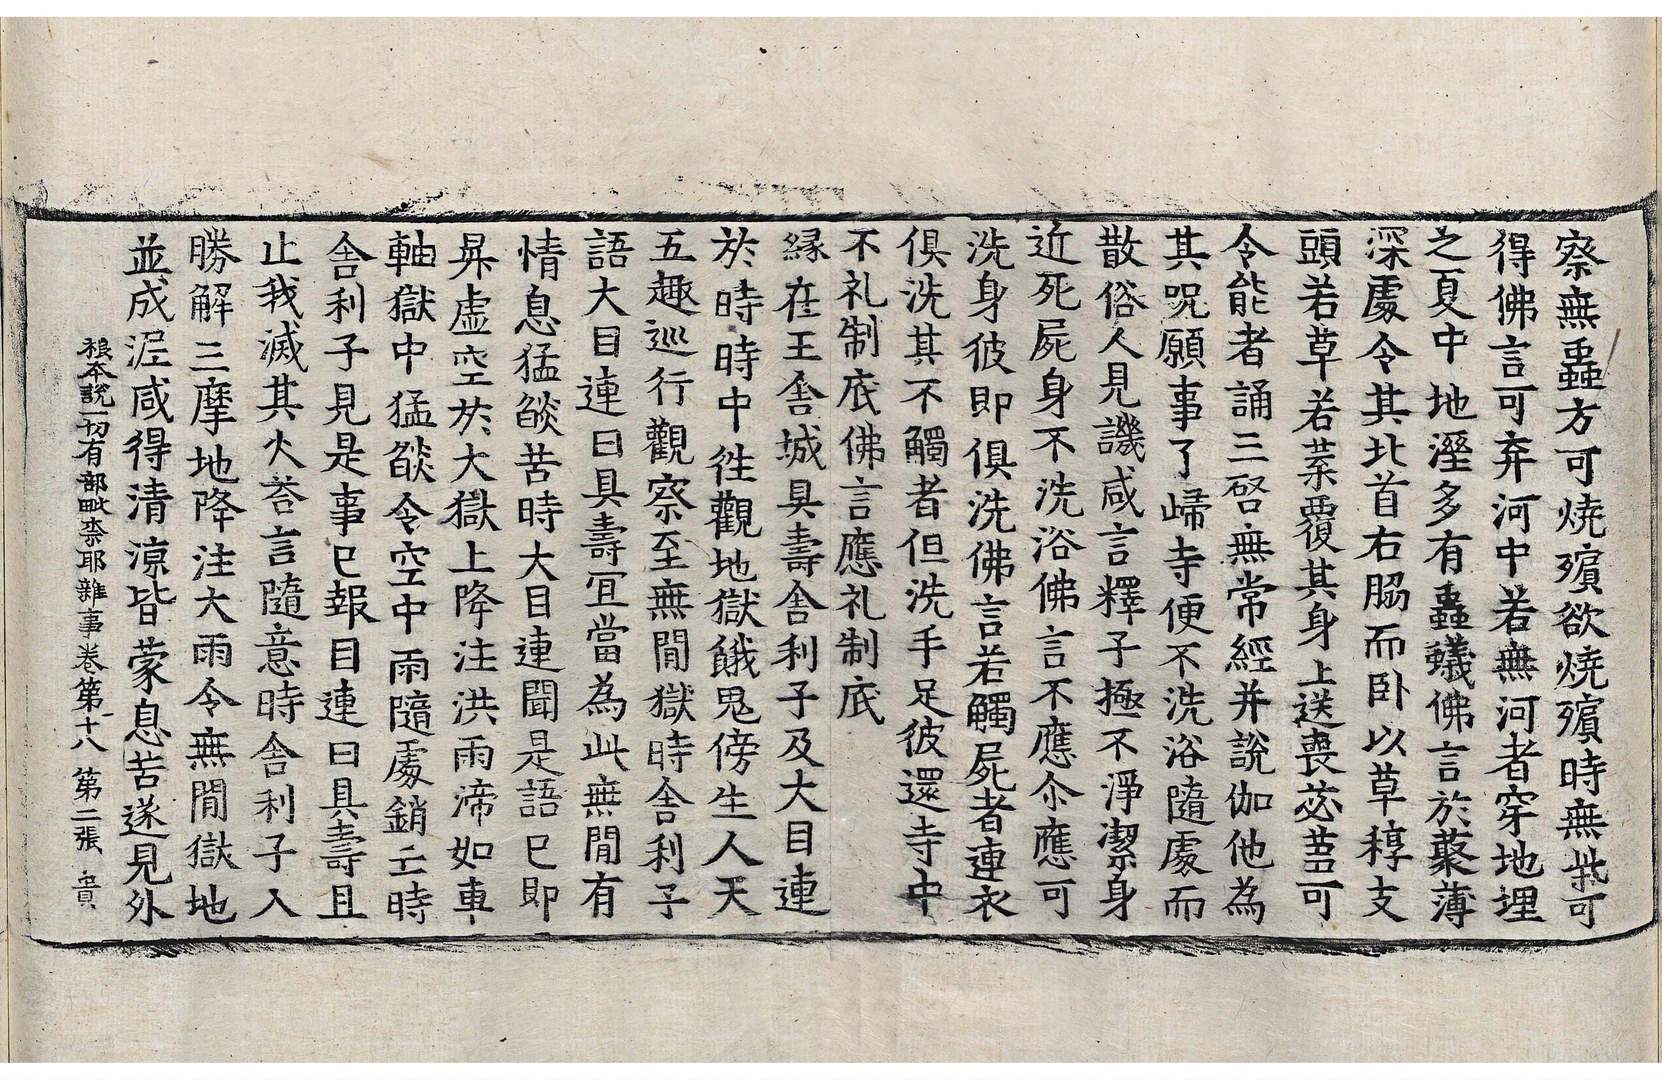 察無蟲方可燒殯欲燒殯時無柴可
得佛言可弃河中若無河者穿地埋
之夏中地溼多有蟲蟻佛言於藂薄
深處令其北首右脇而卧以草稕支
頭若草若葉覆其身上送喪苾芻可
令能者誦三啓無常經并說伽他為
其呪願事了歸寺便不洗浴隨處而
散俗人見譏咸言釋子極不淨潔身
近死屍身不洗浴佛言不應尒應可
洗身彼即俱洗佛言若觸屍者連衣
俱洗其不觸者但洗手足彼還寺中
不礼制底佛言應礼制底
緣在王舍城具壽舍利子及大目連
於時時中徃觀地獄餓鬼傍生人天
五趣巡行觀察至無間獄時舍利子
語大目連曰具壽冝當為此無間有
情息猛燄苦時大目連聞是語已即
昇虛空於大獄上降注洪雨渧如車
軸獄中猛燄令空中雨隨處銷亡時
舍利子見是事已報目連曰具壽且
止我滅其火荅言隨意時舍利子入
勝解三摩地降注大雨令無間獄地
並成泥咸得清涼皆蒙息苦遂見外
根本說一切有部毗柰耶雜事卷第十八　第二張　貴